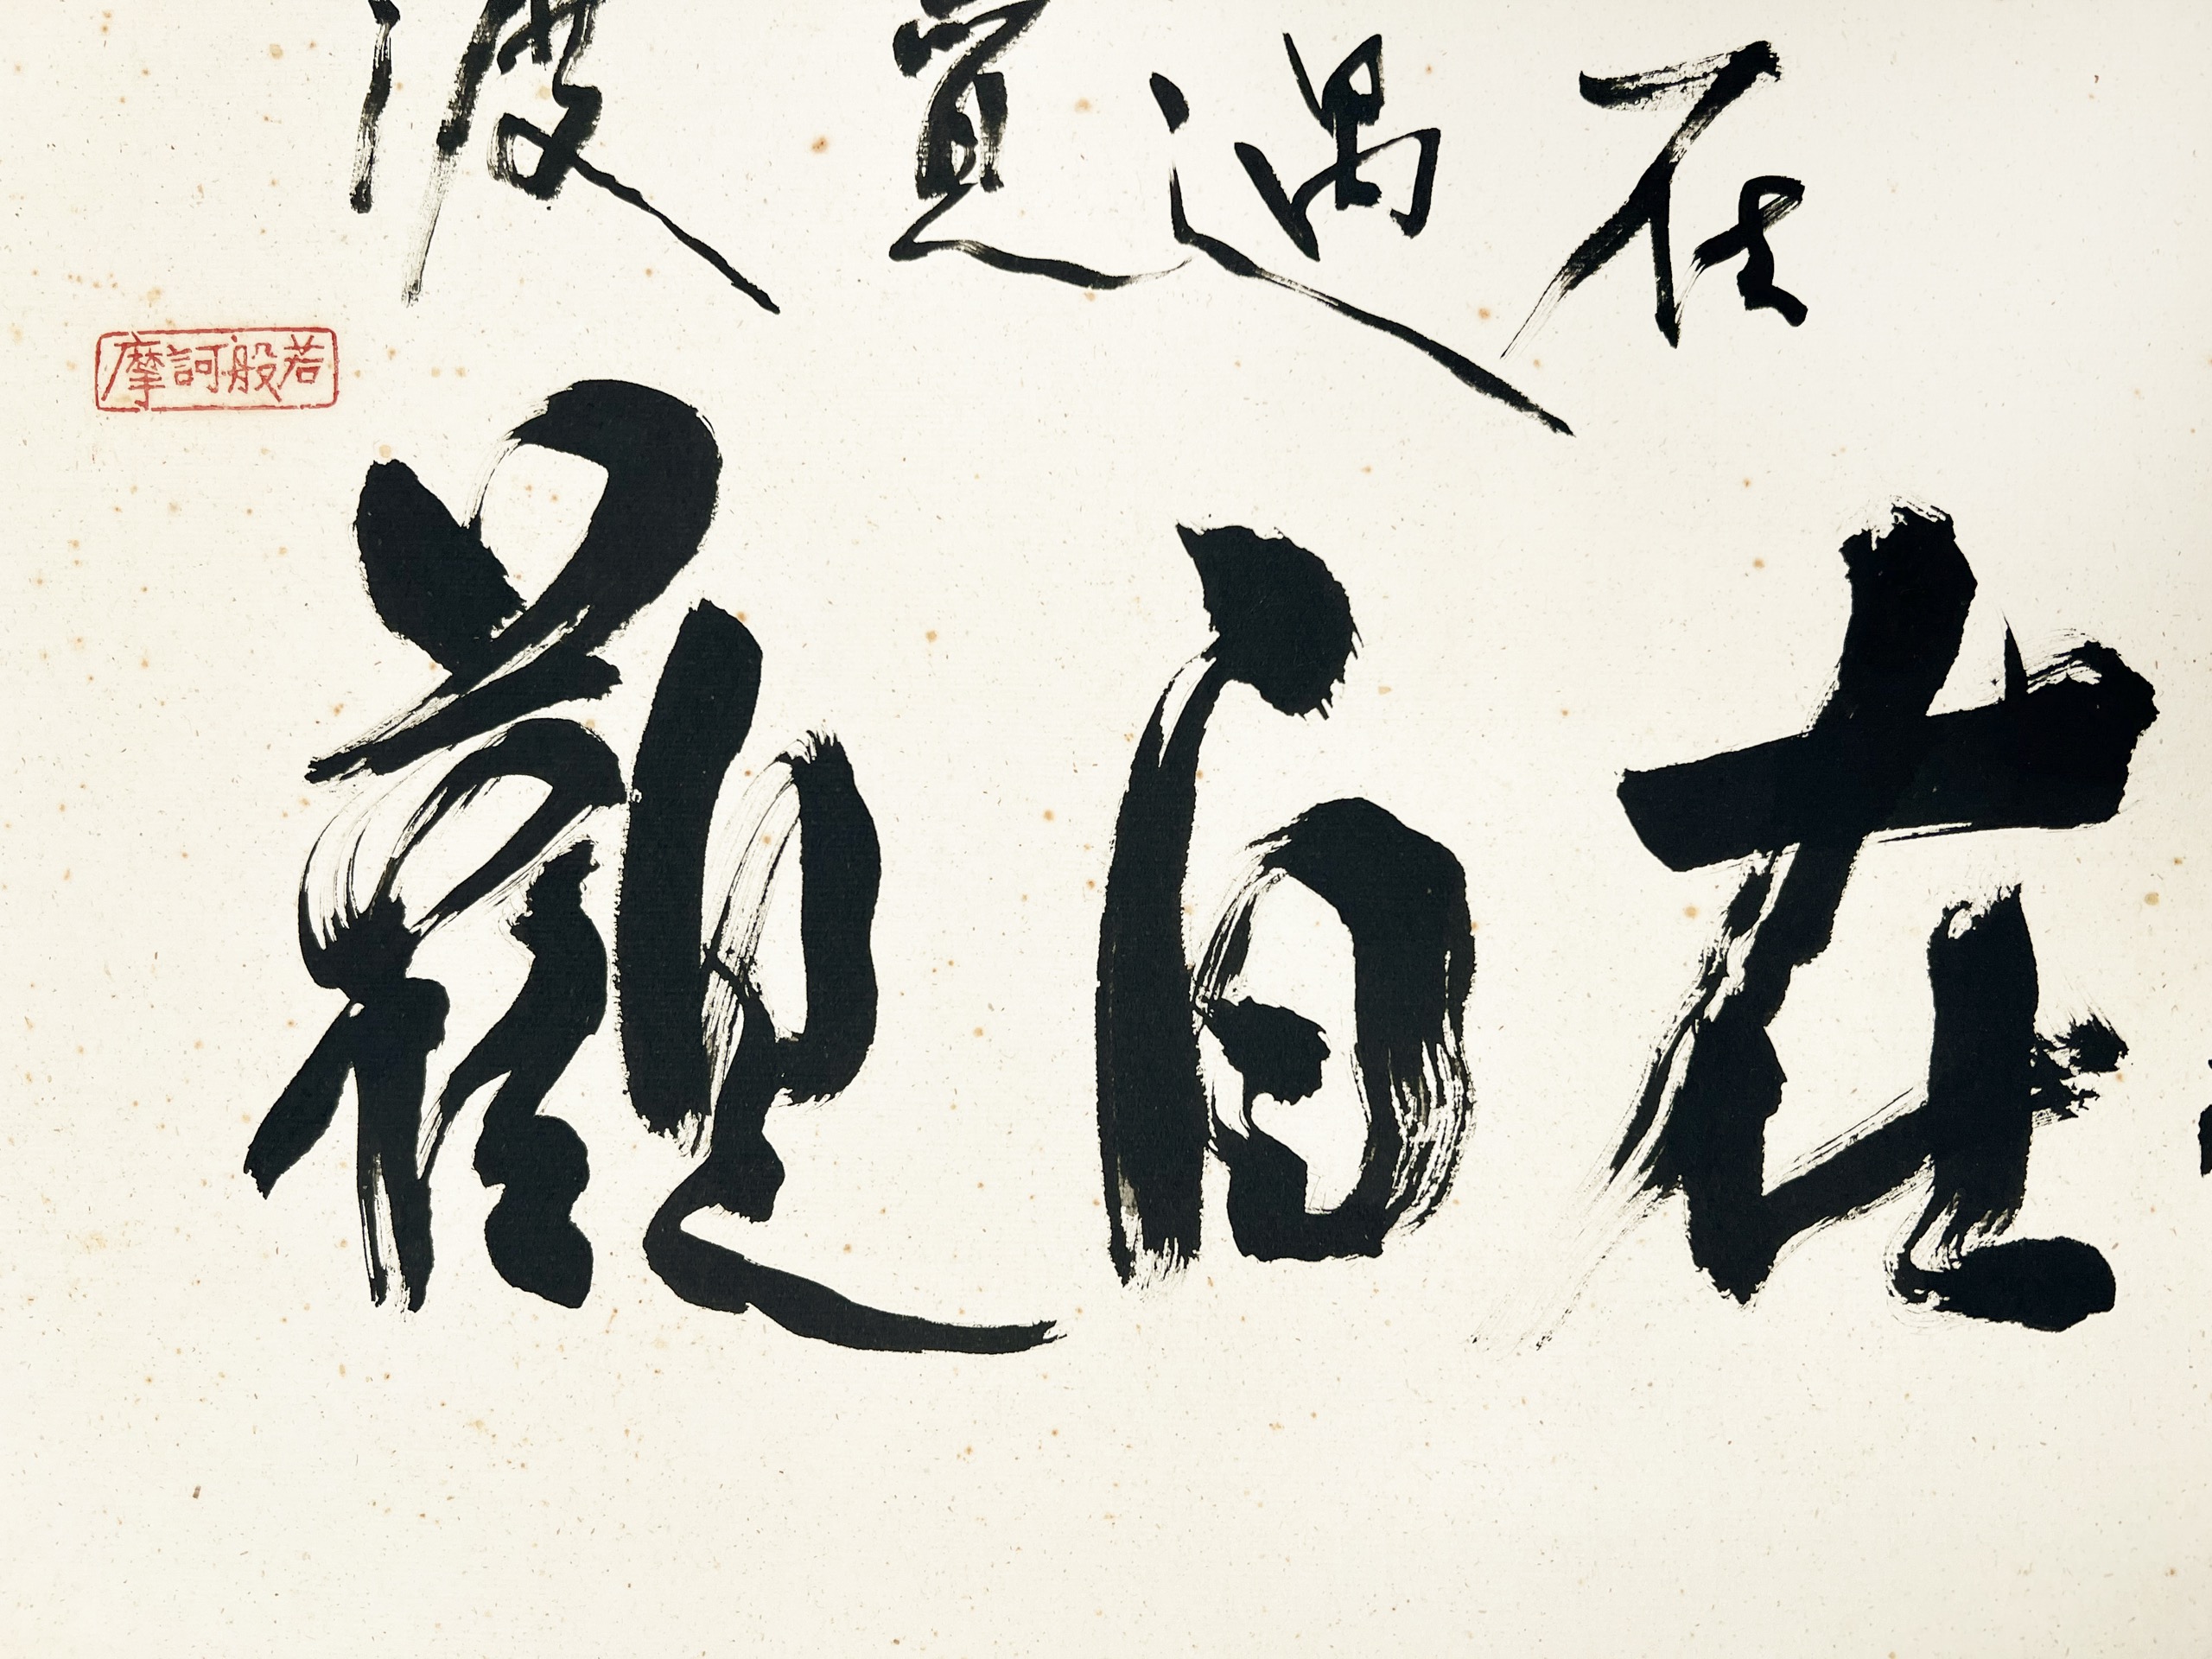 渡 遇 在
摩訶般若
觀自在